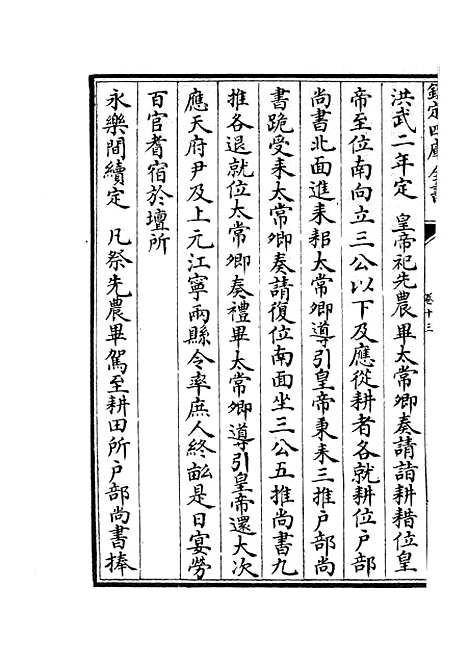 欽定四庫全書
卷十三
洪武二年定　皇帝祀先農畢太常卿奏請詣耕耤位皇
帝至位南向立三公以下及應從耕者各就耕位戶部
尚書北面進耒耜太常卿導引皇帝秉耒三推戶部尚
書跪受耒太常卿奏請復位南面坐三公五推尚書九
推各退就位太常卿奏禮畢太常卿導引皇帝還大次
應天府尹及上元江寧兩縣令率庶人終畝是日宴勞
百官耆宿於壇所
永樂間續定　凡祭先農畢駕至耕田所戶部尚書捧